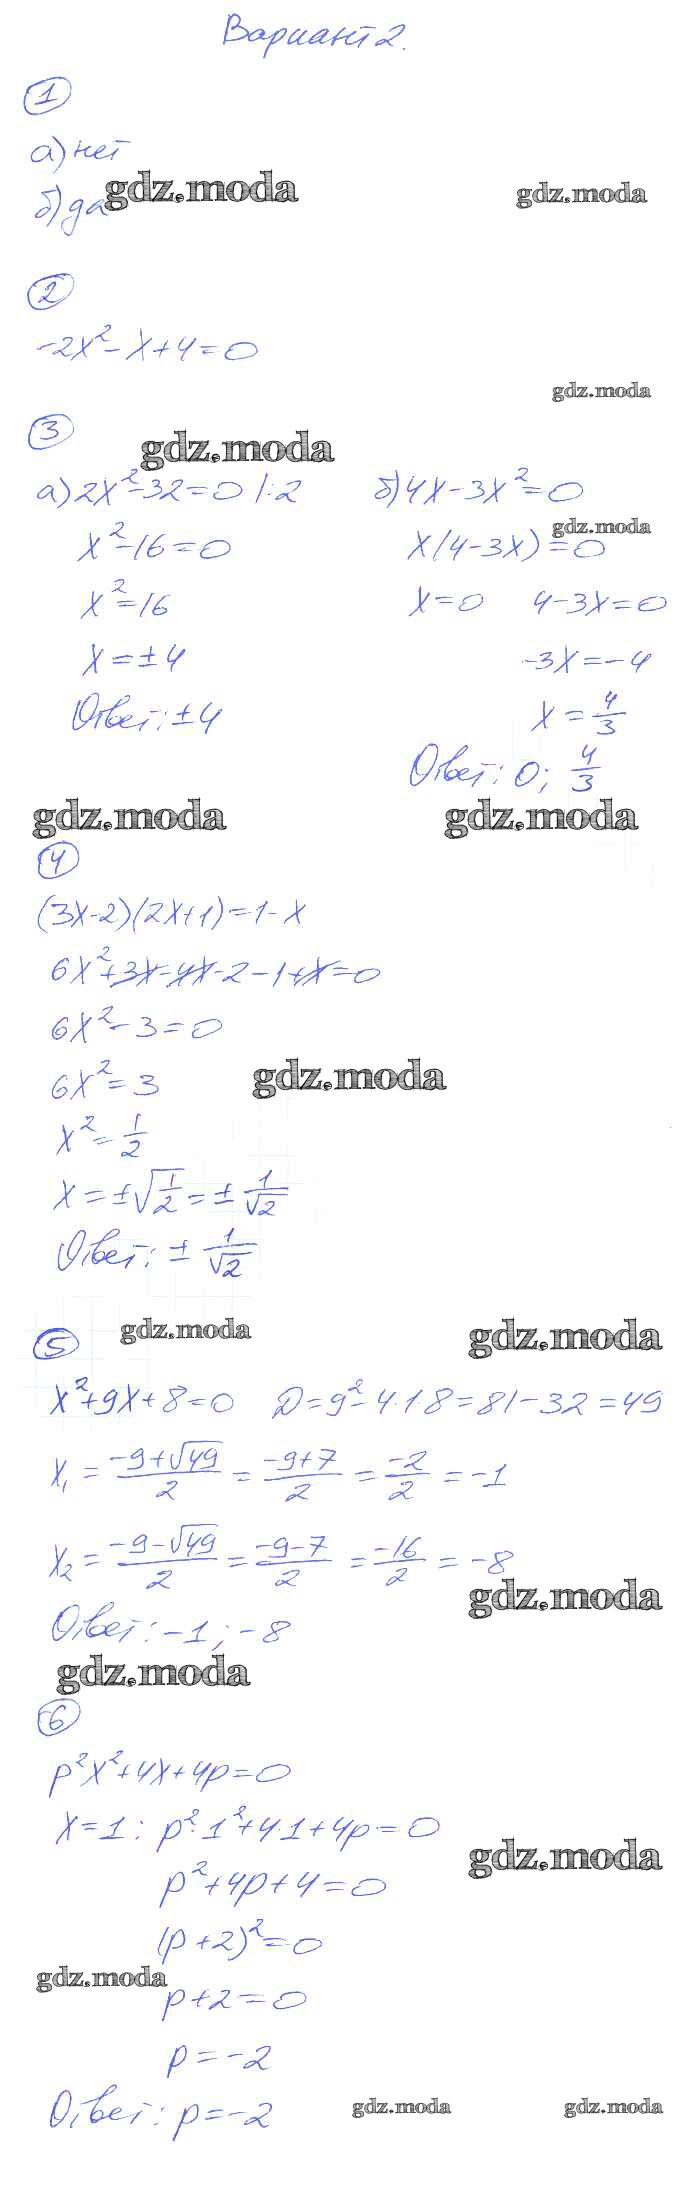 Вариант 2.
1
а) нет
б) да
gdz.moda
gdz.moda
2
-2x²-x+4=0
gdz.moda
3
gdz.moda
а) 2x²-32=0 |:2
x²-16=0
x²=16
x=±4
Ответ: ±4
б) 4x-3x²=0
gdz.moda
x(4-3x)=0
x=0 4-3x=0
-3x=-4
x=4/3
Ответ: 0; 4/3
gdz.moda
gdz.moda
4
(3x-2)(2x+1)=1-x
6x²+3x-4x-2-1+x=0
6x²-3=0
6x²=3
gdz.moda
x²=1/2
x=±√1/2=±1/√2
Ответ: ±1/√2
gdz.moda
gdz.moda
5
x²+9x+8=0 D=9²-4·1·8=81-32=49
x₁=(-9+√49)/2=(-9+7)/2=-2/2=-1
x₂=(-9-√49)/2=(-9-7)/2=-16/2=-8
gdz.moda
Ответ: -1; -8
gdz.moda
6
p²x²+4x+4p=0
x=1: p²·1²+4·1+4p=0
gdz.moda
p²+4p+4=0
(p+2)²=0
gdz.moda
p+2=0
p=-2
Ответ: p=-2
gdz.moda
gdz.moda